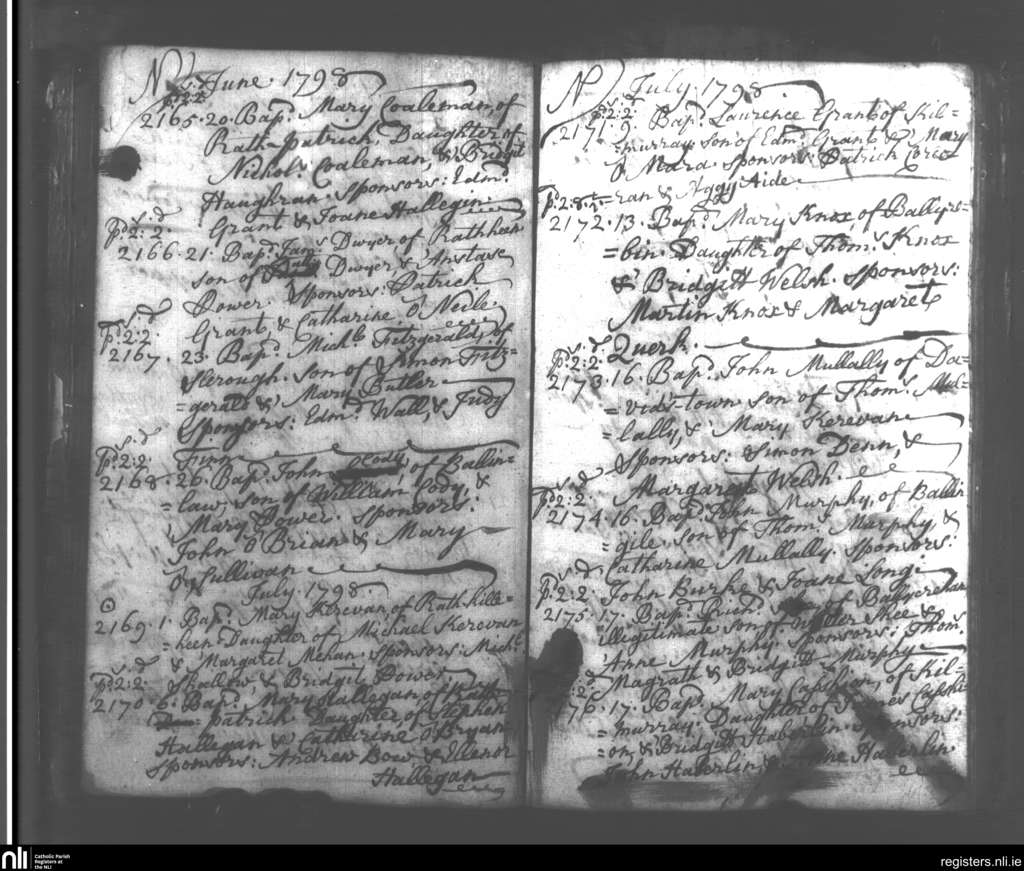 No. June. 1798
s. d
pd. 2:2
2165. 20. Bapd. Mary Coaleman, of
Rath-patrich, Daughter of
Nichols. Coaleman, & Bridgit
Haughran. Sponsors: Edmd.
Grant & Joane Hallegin.
s. d
pd. 2:2.
2166. 21. Bapd. Jams. Dwyer of Rathkeen
son of Dwyer & Anstase
Power. Sponsors: Patrich
Grant, & Catharine O Neile.
s. d
pd. 2:2
2167. 23. Bapd. Michl. Fitzgerald, of
Slerough. son of Simon Fitz=
=gerald & Mary Butler
Sponsors: Edmd. Wall, & Judy
Finn
s. d
pd. 2:2.
2168. 26. Bapd. John Cody, of Ballin=
=law, son of William Cody, &
Mary Power. Sponsors:
John O Brian & Mary
O Sullivan
July 1798.
2169. 1. Bapd. Mary Kerevan, of Rath-kille=
=heen Daughter of Michael Kerevan
& Margaret Mehan. Sponsors: Michl.
Skallow, & Bridgit Power.
s. d
pd. 2:2
2170 6. Bapd. Mary Hallegan of Rath=
patrich Daughter, of Stephen
Hallegan & Catherine O Bryan
Sponsors: Andrew Bow & Elenor
Hallegan
No. July. 1798.
s. d
pd. 2:2
2171. 9. Bapd. Laurence Grant of Kil=
=murray. son of Edmd. Grant & Mary
O Mara. Sponsors: Patrich Corco
=ran & Aggy Aide
pd. 2:8:
2172. 13. Bapd. Mary Knox of Ballyro=
=bin. Daughter of Thoms. Knox
& Bridgitt Welsh. Sponsors:
Martin Knox & Margaret
Querk.
s. d
pd. 2:2:
2173. 16. Bapd. John Mullally of Da=
=vids-town son of Thoms. Mul=
=lally, & Mary Kerevan
Sponsors: Simon Denn, &
Margaret Welsh.
s. d
pd. 2:2
2174. 16. Bapd. John Murphy, of Ballin
=gile. son of Thoms. Murphy &
Catharine Mullally. Sponsors:
John Burke & Joane Long
s. d
pd. 2:2
2175. 17. Bapd. Richd. of
illegitimate son of Walter Shee &
Anne Murphy. Sponsors: Thoms.
Magrath & Bridgit Murphy
2176. 17. Bapd. Mary of Kil=
=murray. Daughter of James
=on, & Bridgit Haberlin. Sponsors:
John Haberlin, & Anne Haberlin
nli
Catholic Parish
Registers at
the NLI
registers.nli.ie